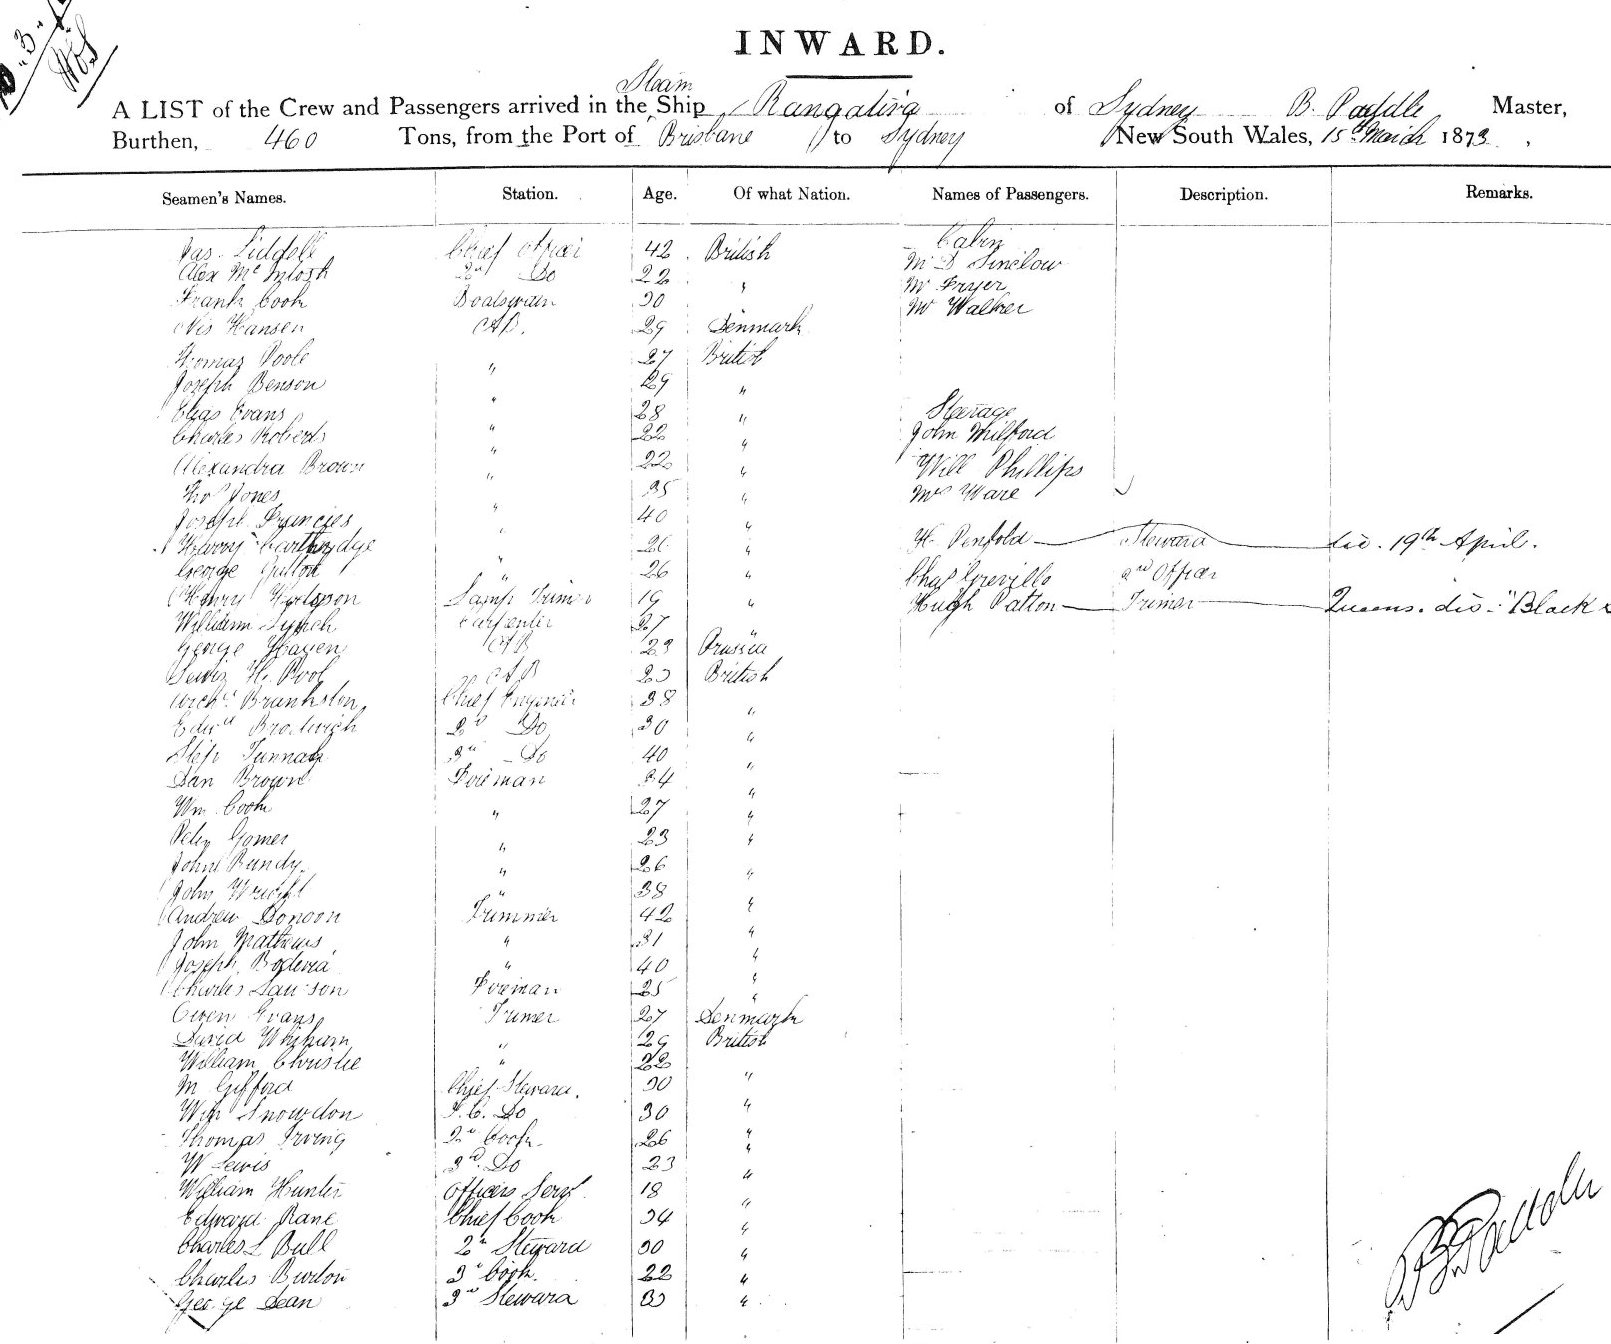 INWARD.
Steam
A LIST of the Crew and Passengers arrived in the Ship Rangatira of Sydney B. Paddle Master,
Burthen, 460 Tons, from the Port of Brisbane to Sydney New South Wales, 15th March 1873.
Seamen's Names. Station. Age. Of what Nation. Names of Passengers. Description. Remarks.
Cabin
Jas. Liddell Chief Officer 42 British
Alex McIntosh 2nd Do 22 "
Mr Fryer
Frank Cook Boatswain 30
Mr Walker
Nis Hansen AB. 29 Denmark
Thomas Poole " 27 British
Joseph Benson " 29 "
Elias Evans " 28 " Steerage
Charles Roberts " 22 " John Milford
Alexandra Brown " 22 " Will Phillips
Thos Jones " 35 " Mrs Ware
Joseph Francies " 40 "
Harry Cartridge " 26 " H. Penfold Steward dis. 19th April.
George " 26 " Chas Greville 2nd Officer
Henry Lamp Trimer 19 " Hugh Patton Trimer Queens. dis. "Black
William Lynch Carpenter 27 "
George Hayen AB 23 Prusia
Lewis H. Pool AB 23 British
Archd. Brunkston Chief Engineer 38 "
Edwd Brodwich 2nd Do 30 "
Step Tunnay 3rd Do 40 "
Dan Brown Foreman 34 "
Wm Cook " 27 "
Peter Gomer " 23 "
John Bundy " 26 "
John Wright " 38 "
Andrew Donoon Trimmer 42 "
John Mathews " 31 "
Joseph " 40 "
Charles Lawson Foreman 25 "
Owen Evans Trimer 27 Denmark
David Whiham " 29 British
William Christie " 22
M Gifford Chief Steward. 30 "
Wm Snowdon F.C. Do 30 "
Thomas Irving 2nd Cook. 26 "
W Lewis 3rd Do 23 "
William Hunter Officers Servt. 18 "
Edward Rane Chief Cook 34 "
Charles L Bull 2nd Steward 30 "
Charles Burton 3rd Cook. 22 "
George Dean 3rd Steward 30 "
B Paddle